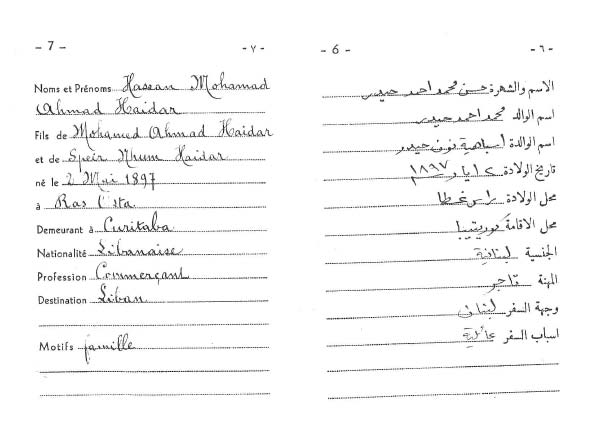 - 7 -
- ٧ -
Noms et Prénoms Hassan Mohamad
Ahmad Haidar
Fils de Mohamed Ahmad Haidar
et de Speir Nhum Haidar
né le 2 Mai 1897
à Ras Osta
Demeurant à Curitaba
Nationalité Libanaise
Profession Commerçant
Destination Liban
Motifs famille
- 6 -
- ٦ -
الاسم والشهرة حسن محمد احمد حيدر
اسم الوالد محمد احمد حيدر
اسم الوالدة حيدر
تاريخ الولادة ٢ ايار ١٨٩٧
محل الولادة راس
محل الاقامة كوريتيبا
الجنسية لبنانية
المهنة تاجر
وجهة السفر لبنان
اسباب السفر عائلية